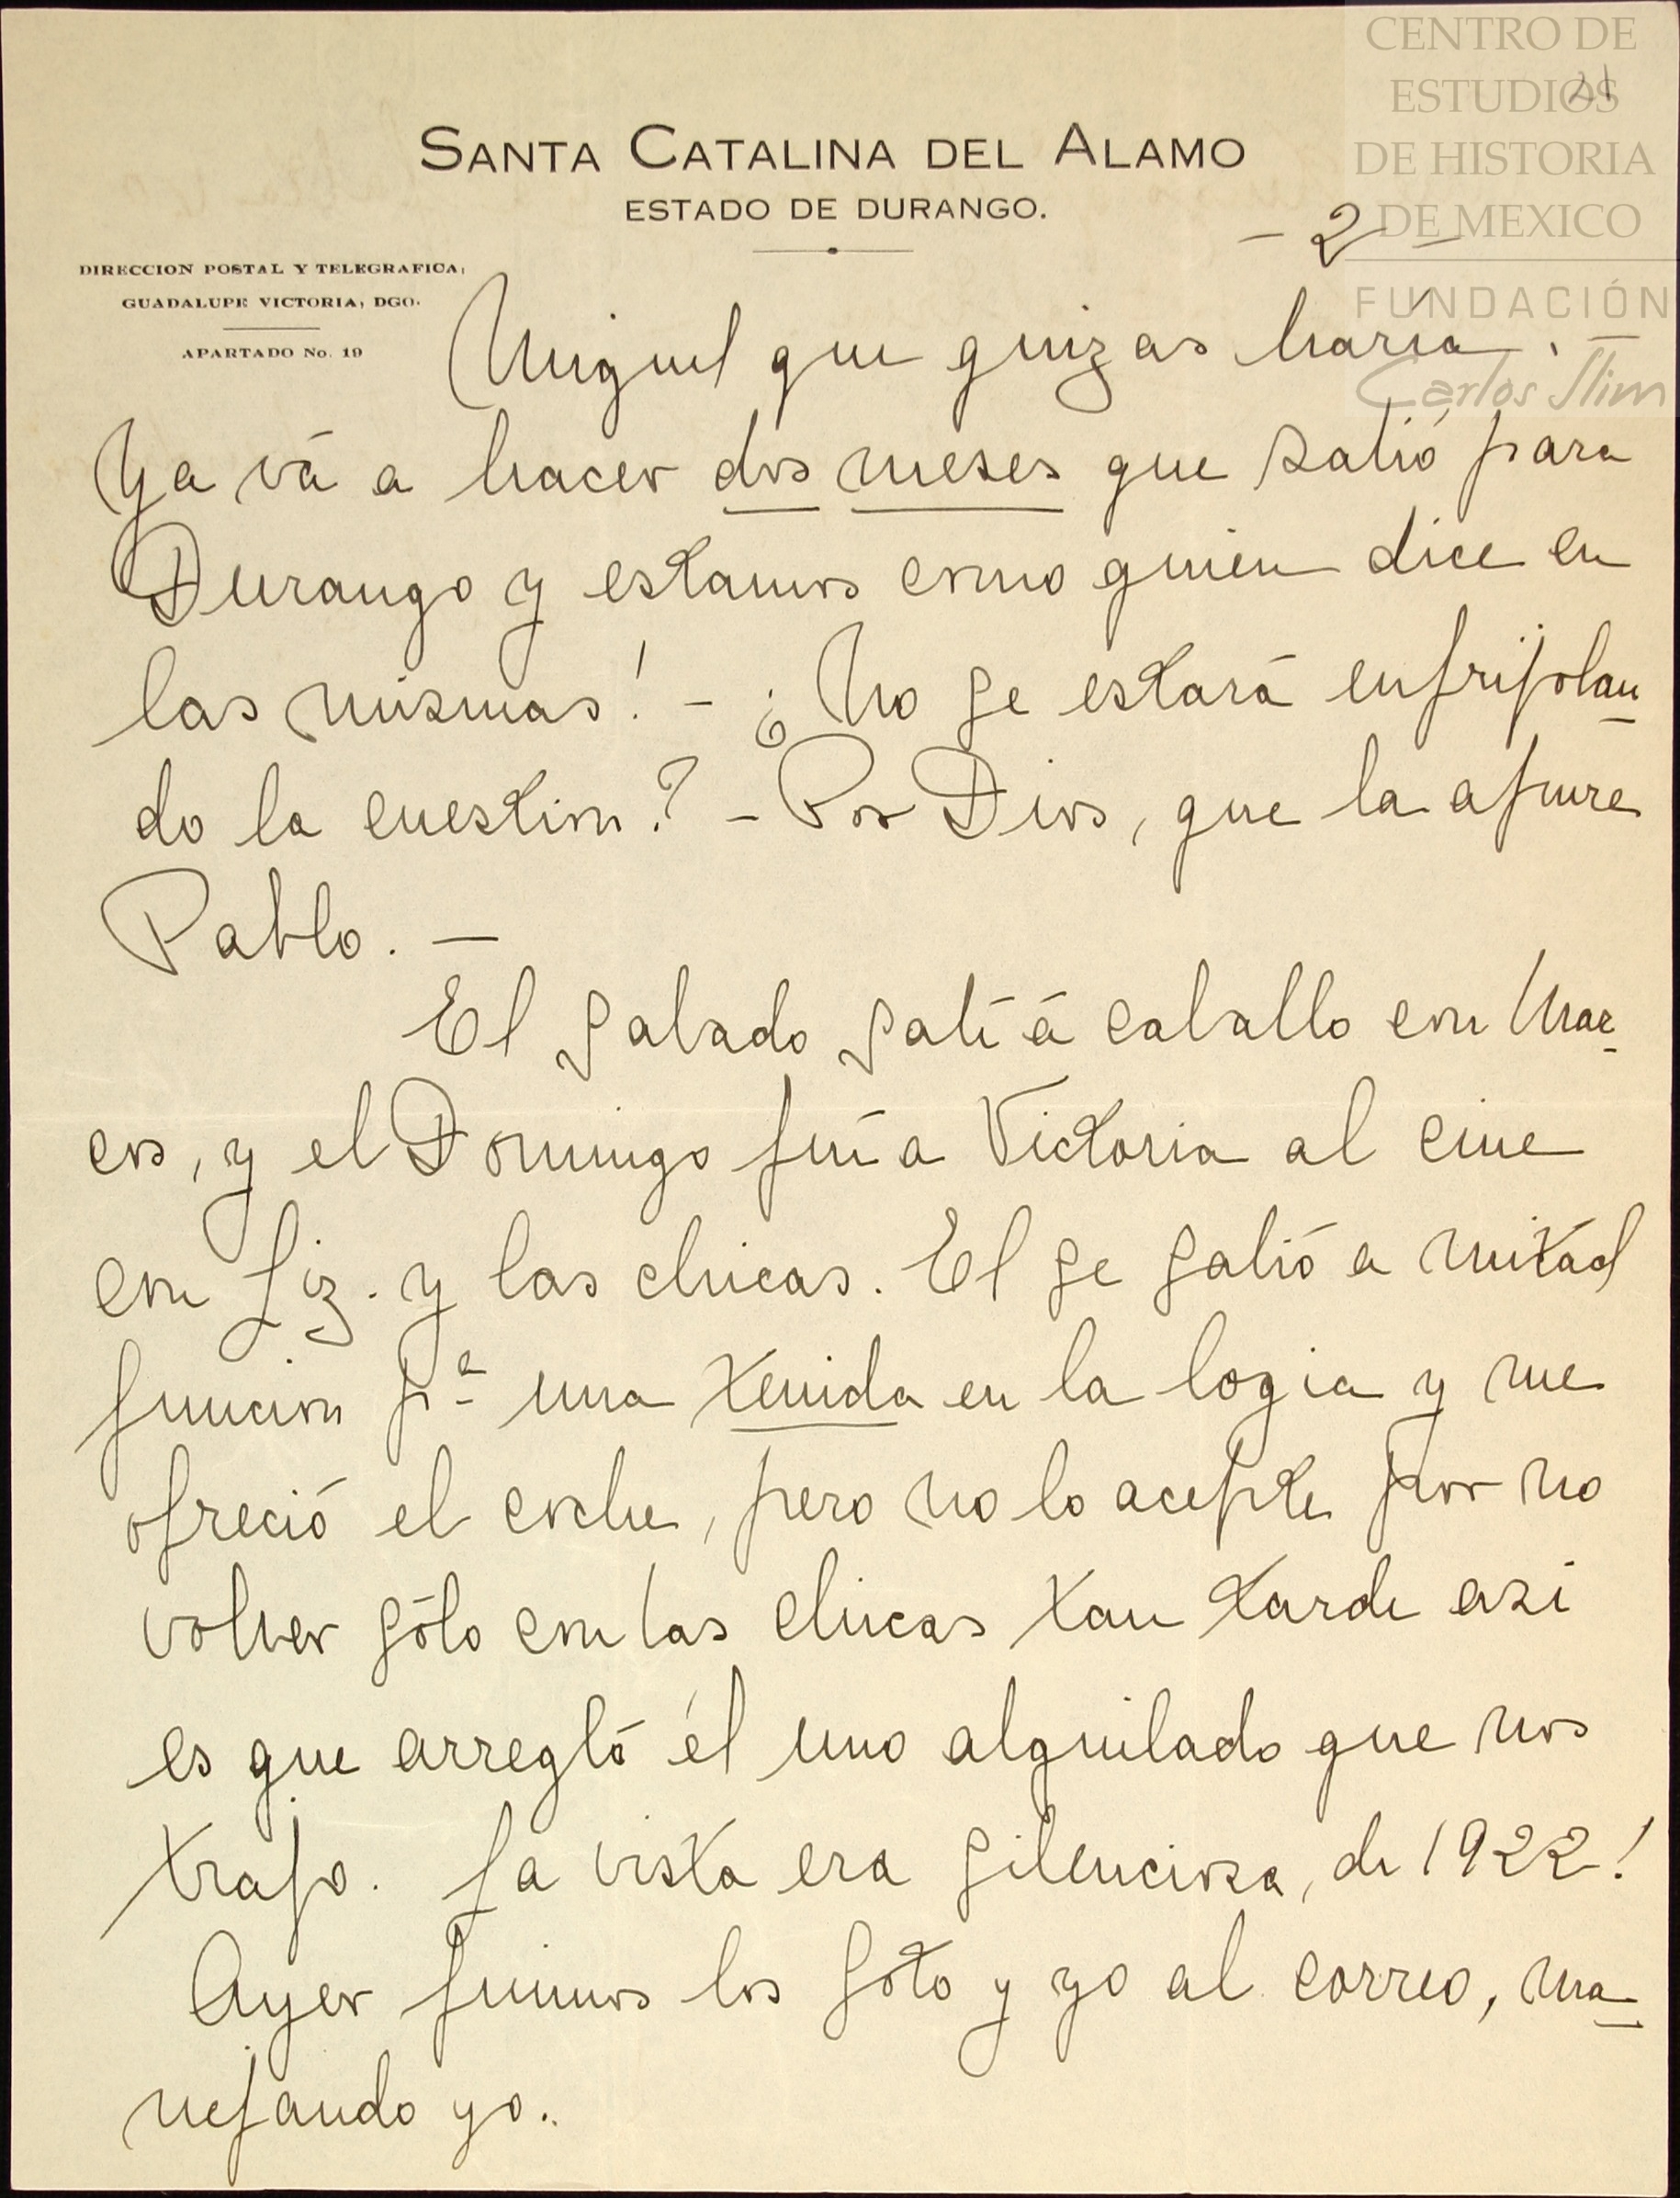 CENTRO DE
ESTUDIOS
21
DE HISTORIA
DE MEXICO
FUNDACIÓN
Carlos Slim
SANTA CATALINA DEL ALAMO
ESTADO DE DURANGO.
- 2 -
DIRECCION POSTAL Y TELEGRAFICA:
GUADALUPE VICTORIA, DGO.
APARTADO No. 19
Miguel que quizas haría. -
Ya vá a hacer dos meses que salió para
Durango y estamos como quien dice en
las mismas! - ¿No se estará enfrijolan
do la cuestion? - Por Dios, que la apure
Pablo. -
El sabado salí á caballo con Mar
cos, y el Domingo fuí a Victoria al cine
con Liz. y las chicas. El se salió a mitád
funcion pª una tenida en la logia y me
ofreció el coche, pero no lo acepte por no
volver sólo con las chicas tan tarde asi
es que arregló él uno alquilado que nos
trajo. La vista era silenciosa, de 1922!
Ayer fuimos los Soto y yo al correo, ma
nejando yo..